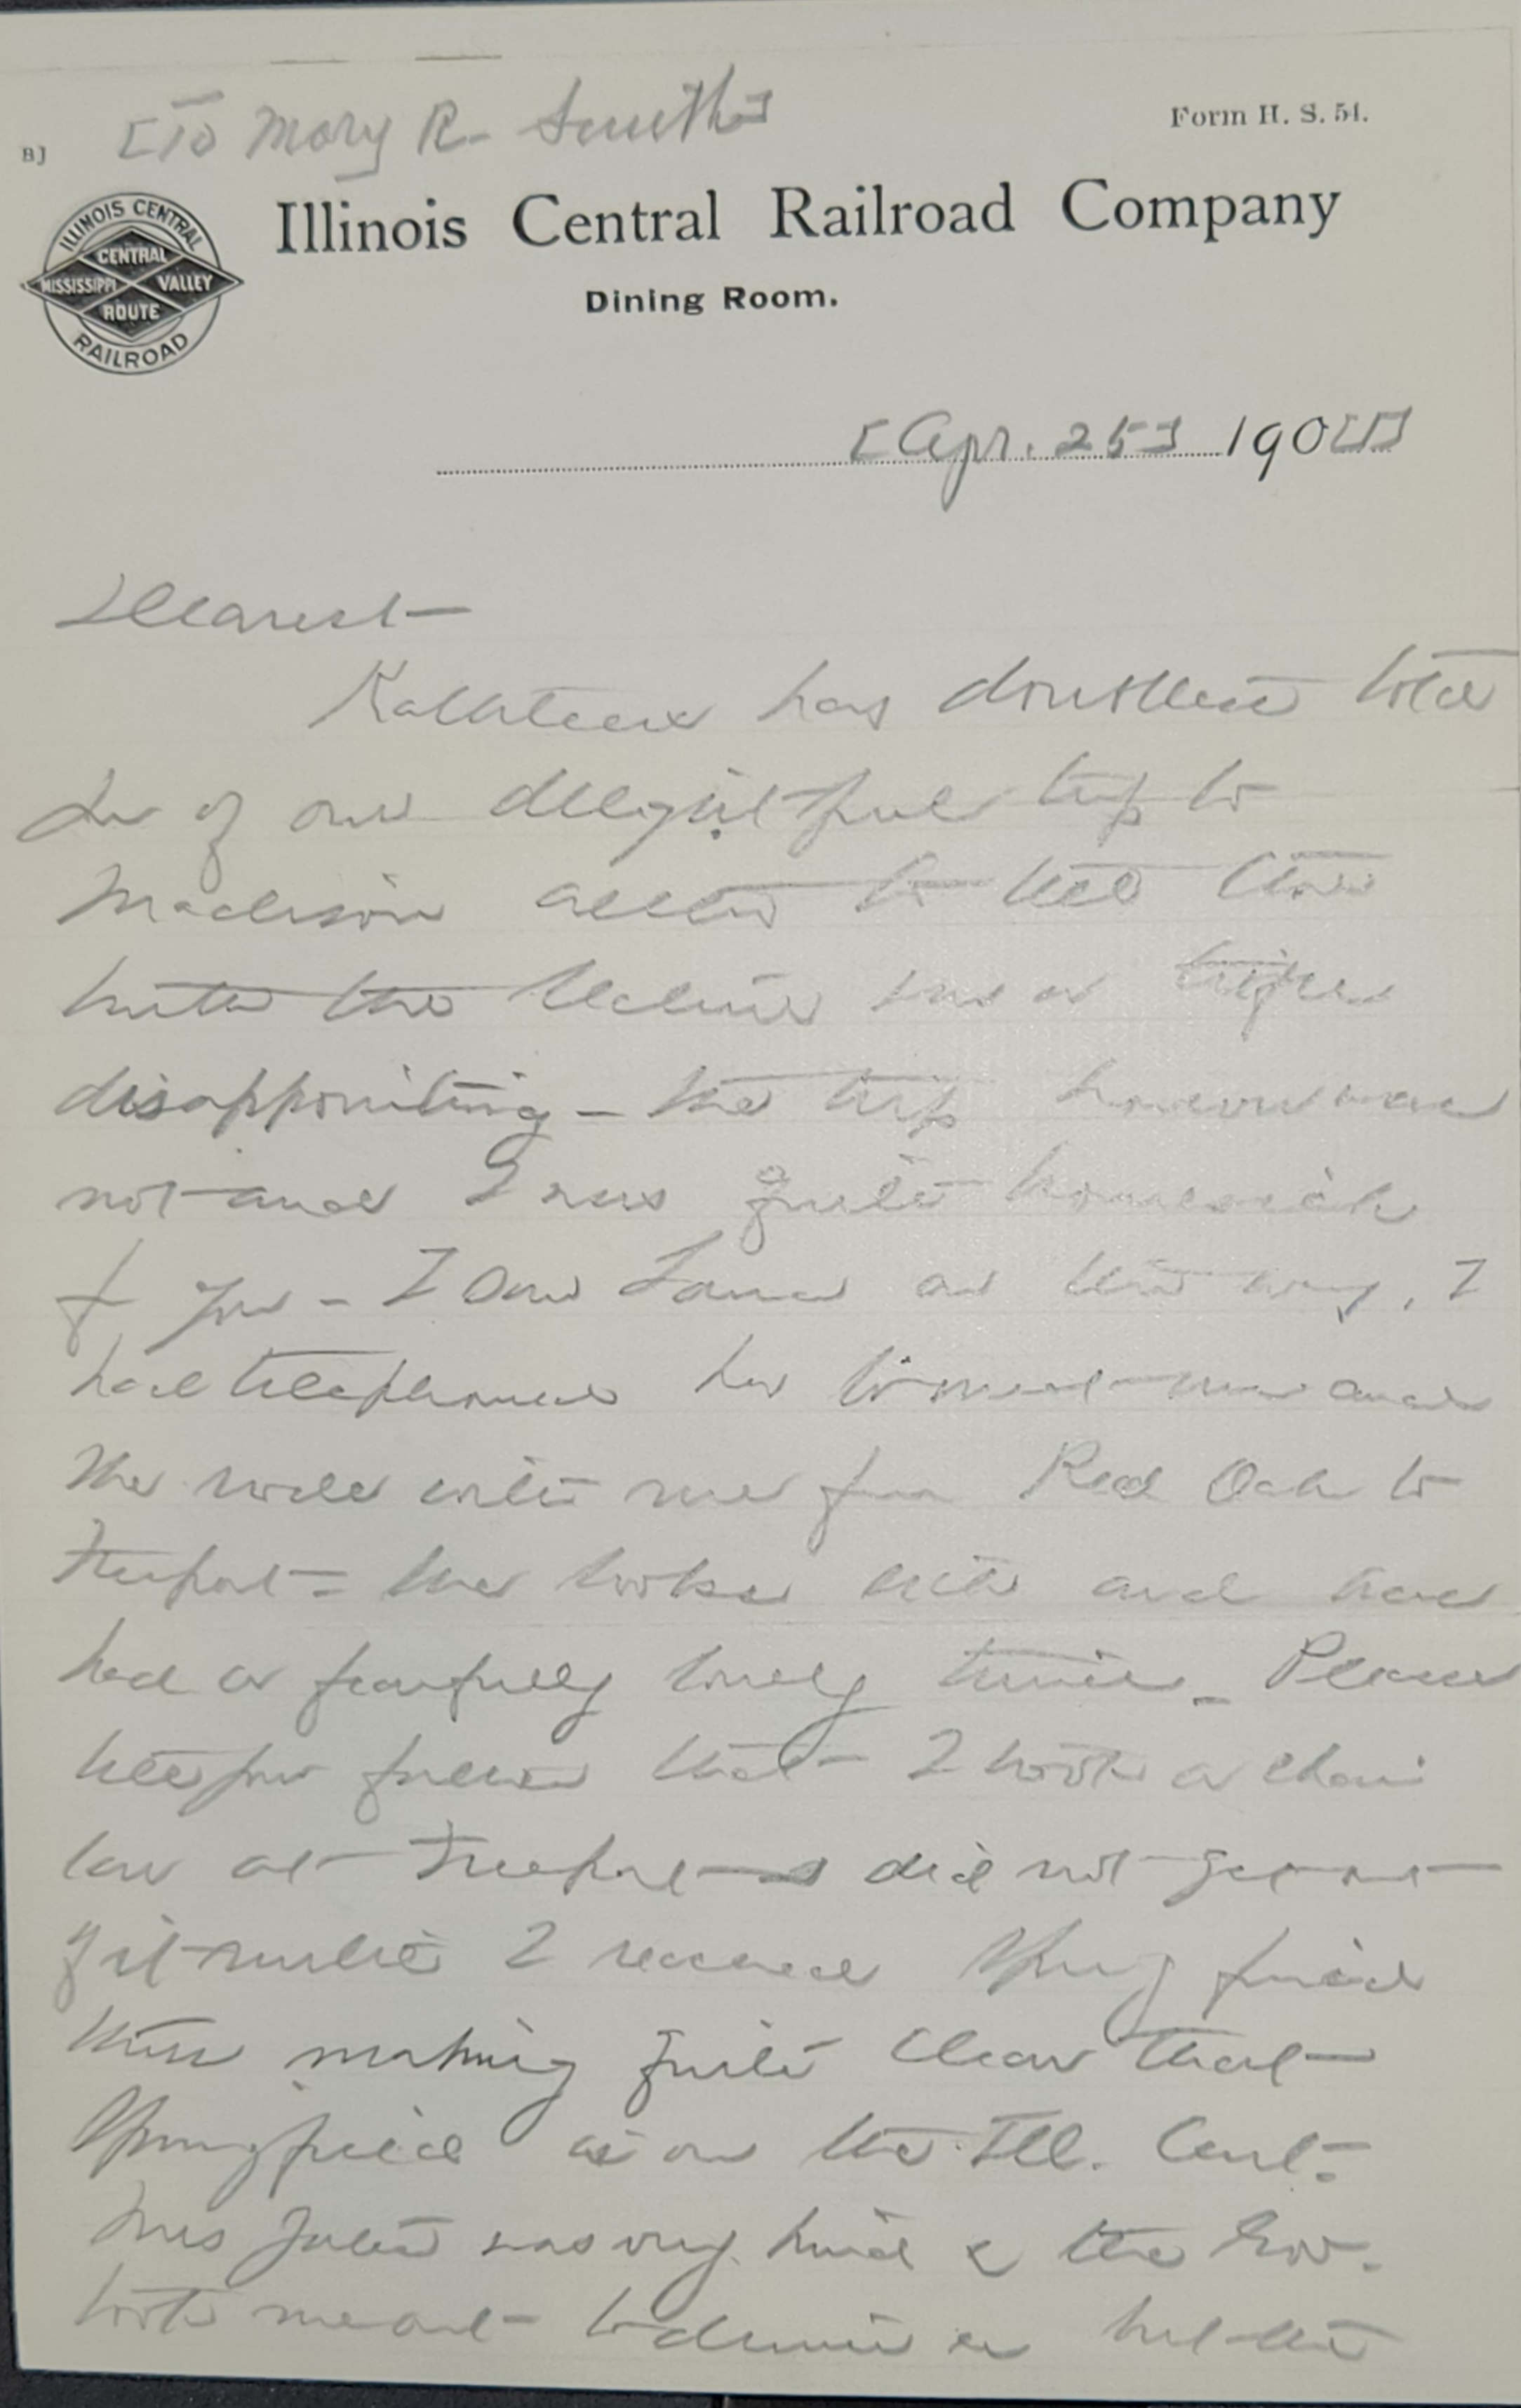 [To Mary R. Smith]
Form H. S. 51.
B]
ILLINOIS CENTRAL
CENTRAL
MISSISSIPPI VALLEY
ROUTE
RAILROAD
Illinois Central Railroad Company
Dining Room.
[Apr. 25] 190[1]
Dearest—
has doubtless told
of our delightful trip to
Madison
the was a trifle
disappointing – the trip however was
not and I was quite homesick
f you – I saw Laura on the way, I
had telephoned her to meet me and
she rode with me from Red Oak to
Freeport – she looks and has
had a fearfully lonely time – Please
that I took a chair
car at Freeport & did not get out
of it until I reached Springfield
thus making quite clear that
Springfield is on the Ill. Cent.
Mrs Yates was very kind & the Gov.
took me out to drive in